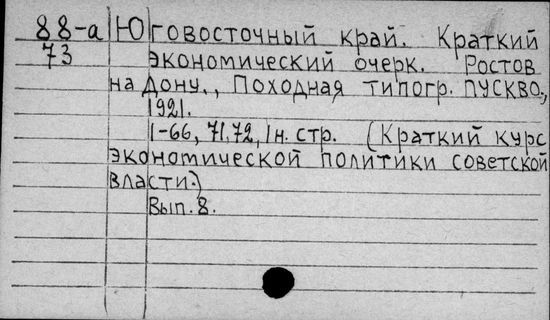 88-а Юговосточный край. Краткий
73 экономический очерк. Ростов
на Дону., Походная типогр. ПУСКВО.,
1921.
1-66, 71, 72, 1 н. стр. (Краткий курс
экономической политики советской
власти.)
Вып. 8.